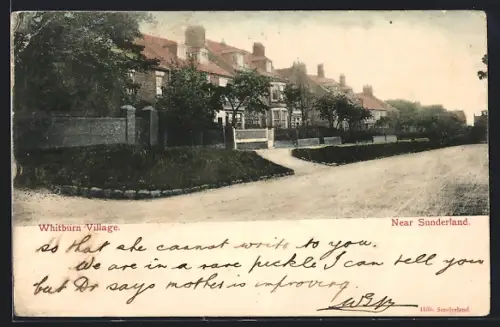 Whitburn Village. Near Sunderland.
so that she cannot write to you.
We are in a rare pickle I can tell you
but Dr says mother is improving.
Hills. Sunderland.